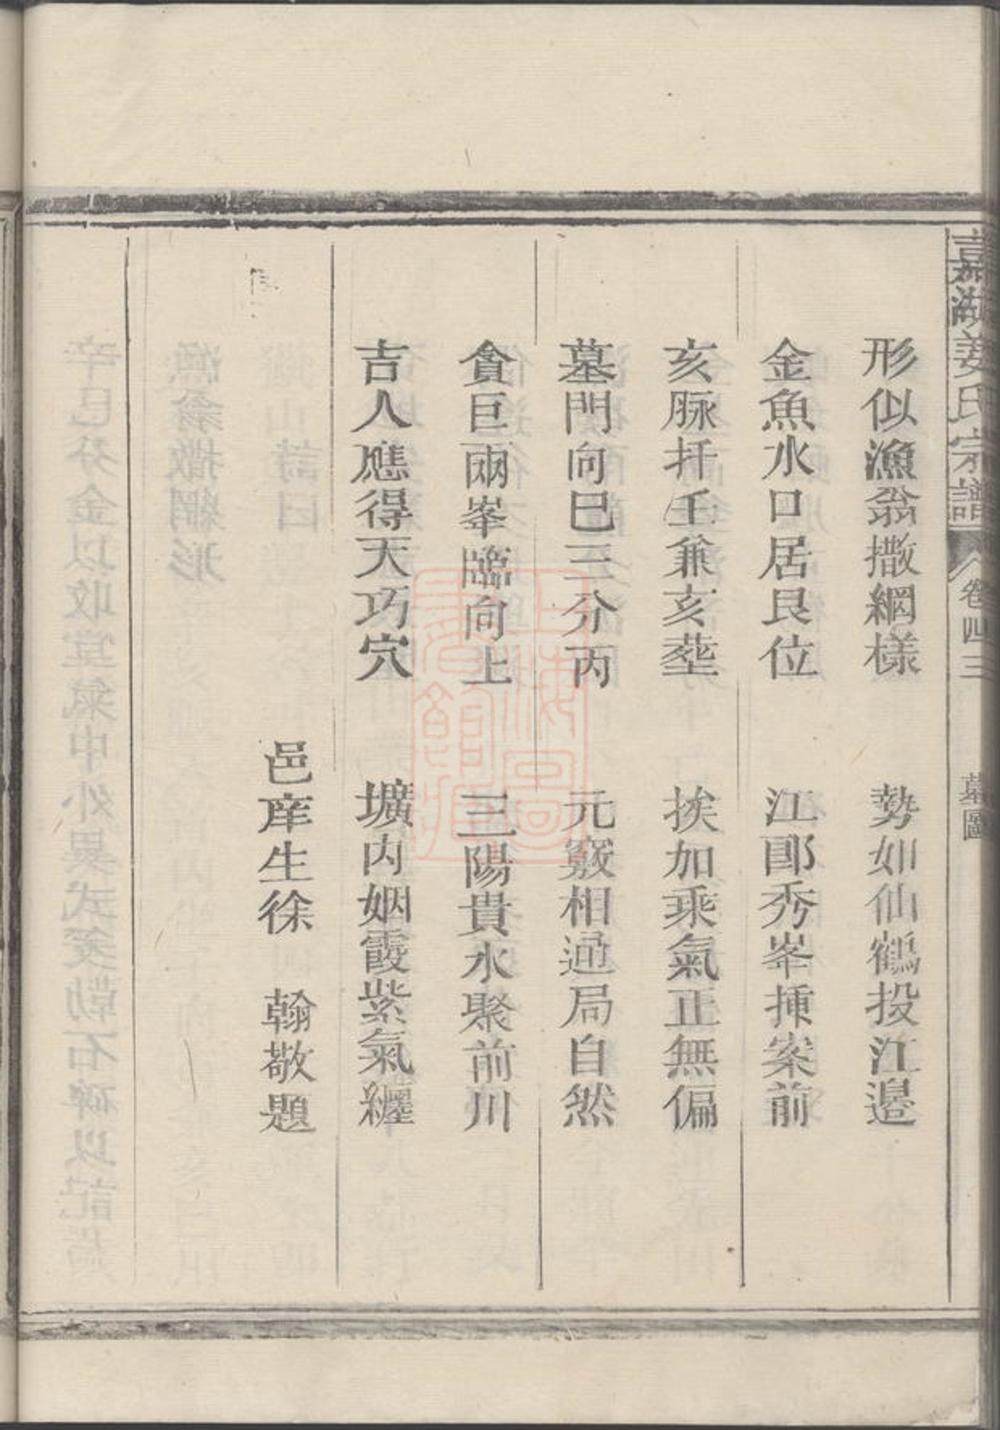 嘉湖姜氏宗譜 卷四三 墓圖
形似漁翁撒網樣 勢如仙鶴投江邉
金魚水口居艮位 江郎秀峯揷案前
亥脉扦壬兼亥塟 挨加乘氣正無偏
墓門向巳三分丙 元竅相通局自然
貪巨兩峯臨向上 三陽貴水聚前川
吉人應得天巧穴 壙内姻霞紫氣纒
邑庠生徐 翰敬題
上海圖書館藏